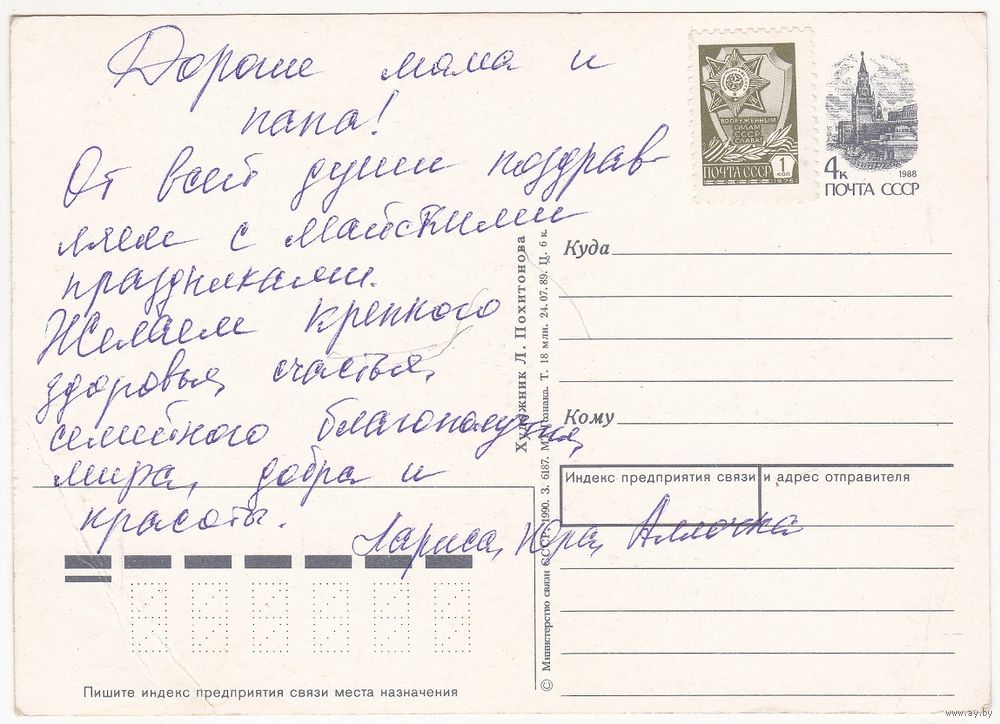 Дорогие мама и
папа!
От всей души поздрав
ляем с майскими
праздниками.
Желаем крепкого
здоровья, счастья,
семейного благополучия,
мира, добра и
красоты.
Лариса, Юра, Аллочка
ВООРУЖЕННЫМ
СИЛАМ
СССР
СЛАВА!
ПОЧТА СССР
1
коп
1976
4к
1988
ПОЧТА СССР
Куда
Кому
Индекс предприятия связи и адрес отправителя
Художник Л. Похитонова
© Министерство связи СССР. 1990. З. 6187. МПФ Гознака. Т. 18 млн. 24.07.89. Ц. 6 к.
Пишите индекс предприятия связи места назначения
www.ay.by